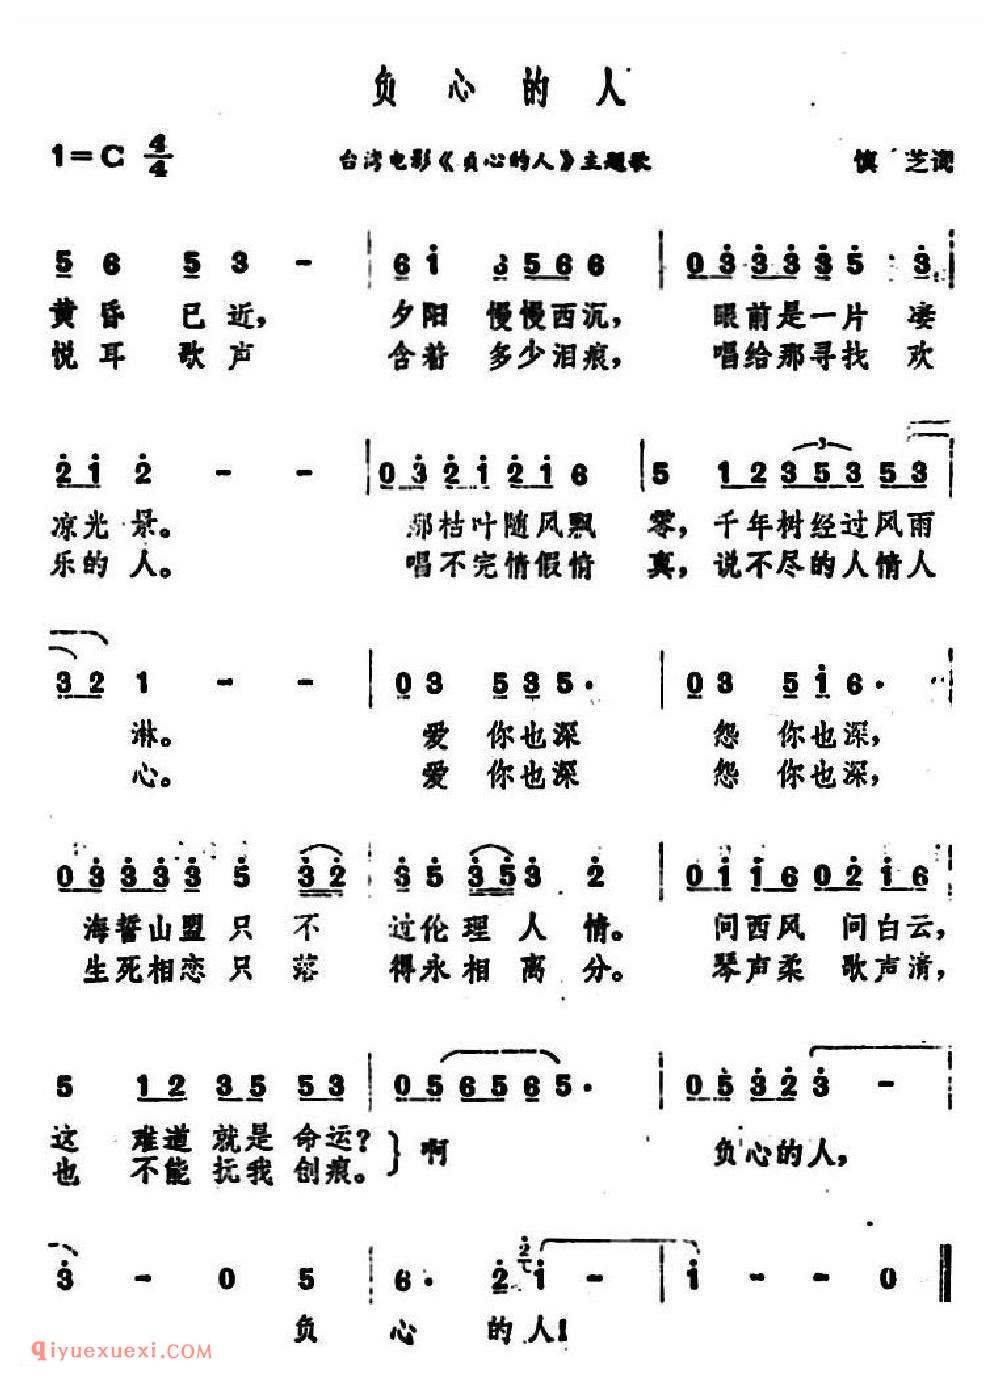 负心的人
1=C 4/4 台湾电影《负心的人》主题歌 慎 芝词
5 6 5 3 - 6 1 3 5 6 6 6 0 3 3 3 3 5 3
黄昏 已近， 夕阳 慢慢西沉， 眼前是一片 凄
悦耳 歌声 含着 多少泪痕， 唱给那寻找 欢
2 1 2 - - 0 3 2 1 2 1 6 5 1 2 3 5 3 5 3
凉光 景。 那枯叶随风飘 零，千年树经过风雨
乐的 人。 唱不完情假情 真，说不尽的人情人
3 2 1 - - 0 3 5 3 5 · 0 3 5 1 6 ·
淋。 爱 你也深 怨 你也深，
心。 爱 你也深 怨 你也深，
0 3 3 3 3 5 3 2 3 5 3 5 3 2 0 1 1 6 0 2 1 6
海誓山盟只 不 过伦理 人 情。 问西风 问白云，
生死相恋只 落 得永相 离 分。 琴声柔 歌声清，
5 1 2 3 5 5 3 0 5 6 5 6 5 · 0 5 3 2 3 -
这 难道 就是 命运？ } 啊 负心的人，
也 不能 抚我 创痕。
3 - 0 5 6 · 2 2 1 - 1 - - 0
负 心 的人！
qiyuexuexi.com